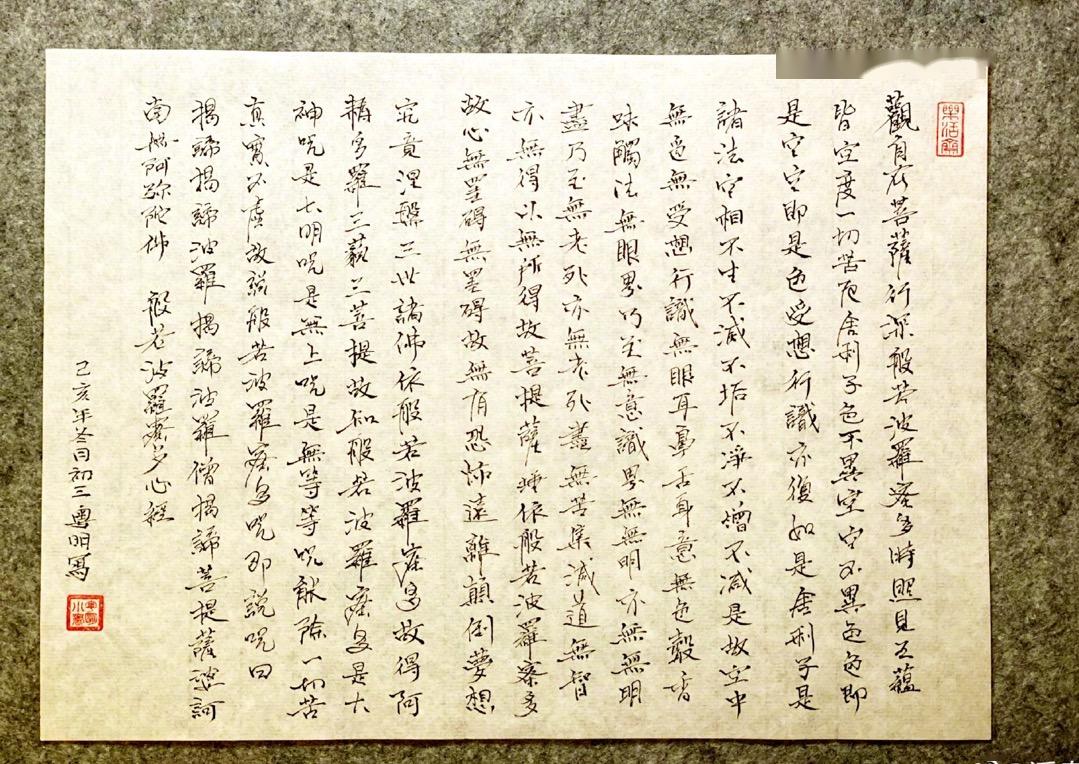 樂活齋
觀自在菩薩行深般若波羅蜜多時照見五蘊
皆空度一切苦厄舍利子色不異空空不異色色即
是空空即是色受想行識亦復如是舍利子是
諸法空相不生不滅不垢不淨不增不減是故空中
無色無受想行識無眼耳鼻舌身意無色聲香
味觸法無眼界乃至無意識界無無明亦無無明
盡乃至無老死亦無老死盡無苦集滅道無智
亦無得以無所得故菩提薩埵依般若波羅蜜多
故心無罣碍無罣碍故無有恐怖遠離顛倒夢想
究竟涅槃三世諸佛依般若波羅蜜多故得阿
耨多羅三藐三菩提故知般若波羅蜜多是大
神咒是大明咒是無上咒是無等等咒能除一切苦
真實不虛故說般若波羅蜜多咒即說咒曰
揭諦揭諦波羅揭諦波羅僧揭諦菩提薩婆訶
南無阿彌陀佛 般若波羅蜜多心經
己亥年冬月初三粵明寫